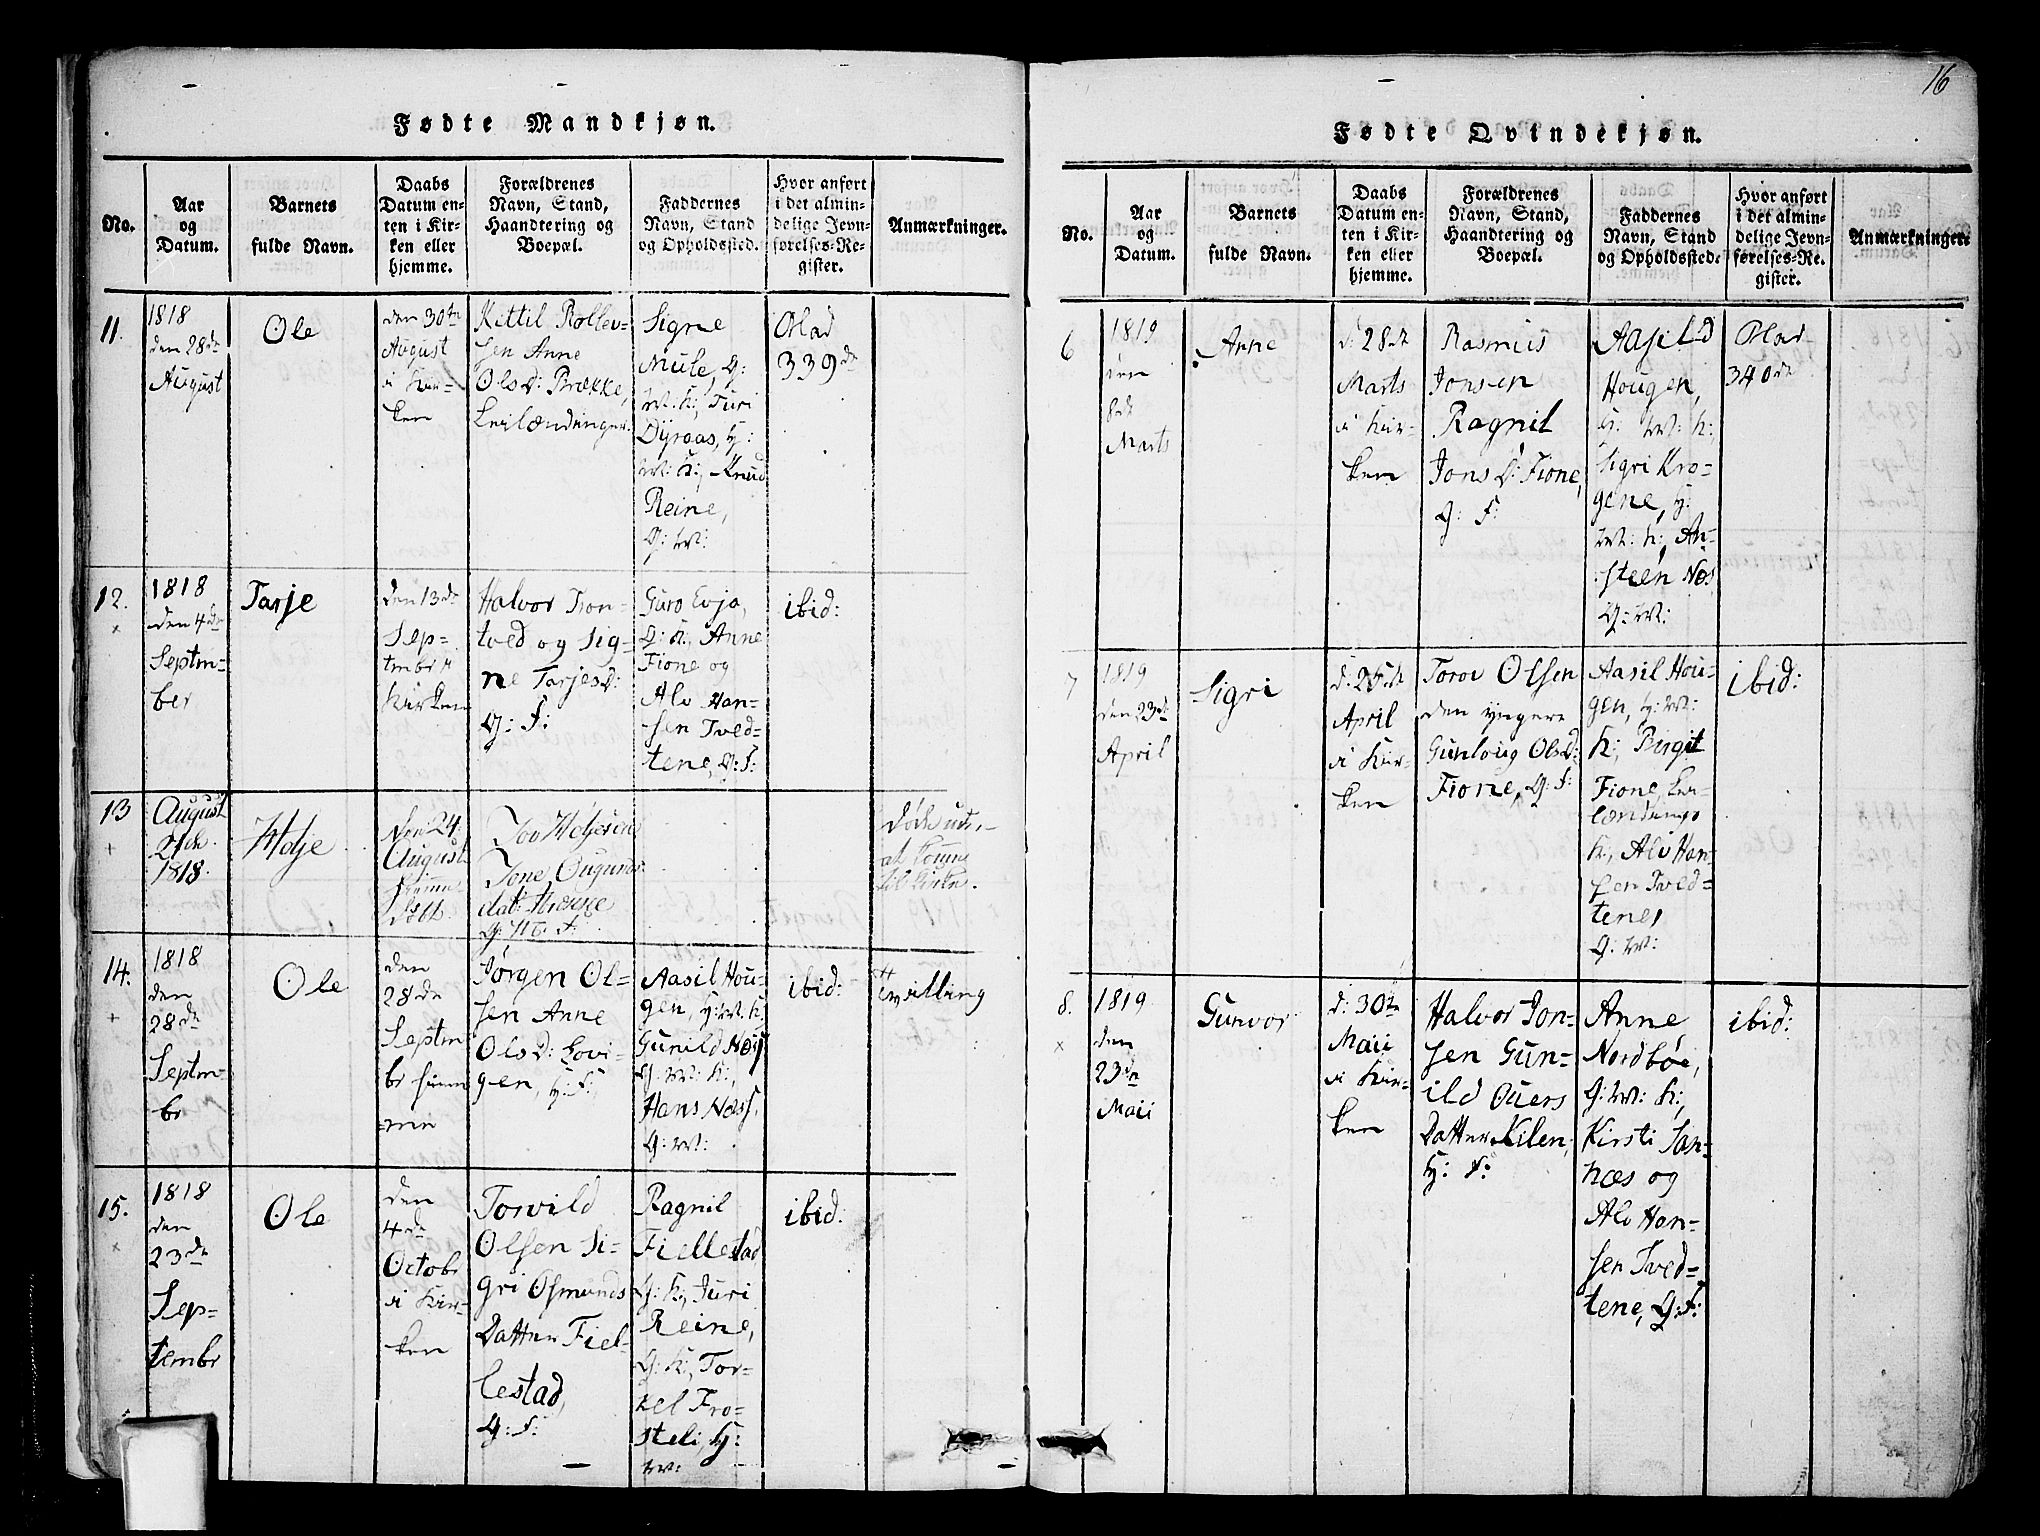 16
Fødte Mandkjøn.
No.
Aar
og
Datum.
Barnets
fulde Navn.
Daabs
Datum en-
ten i Kir-
ken eller
hjemme.
Forældrenes
Navn, Stand,
Haandtering og
Boepæl.
Faddernes
Navn, Stand
og Opholdssted.
Hvor anført
i det almin-
delige Jevn-
førelses-Re-
gister.
Anmærkninger.
11.
1818
den 28de
August
Ole
den 30te
August
i Kir-
ken
Kittil Rollev-
sen Anne
Olsd: Brække,
Leilændinger.
Signe
Mule, G:
W: K:, Turi
Dyraas, H:
W: K:, Knud
Reine,
G: W:
Olad
339de
12.
×
1818
den 4de
Septm-
ber
Tarje
den 13de
Sep-
tmbr i
Kirken
Halvor Tron-
tved og Sig-
ne Tarjesd:
G: F:
Guro Evja,
G: K:, Anne
Fione og
Alv Han-
sen Tved-
tene, G: F:
ibid:
13
+
August
21de
1818.
den 24
August
Jov
G: F:
til Kirken.
14.
+
1818
den
28de
Septm-
br
Ole
den
28de
Septm
br hiem
me
Jørgen Ol-
sen Anne
Olsd: Lovi-
gen, H: F:
Aasil Hou-
gen, H: W: K:
Gunild Næs
G: W: K:,
Hans Næss,
G: W:
ibid:
tvilling
15.
×
1818
den
23de
Sep-
tembr
Ole
den
4de
Octobr
i Kir-
ken
Torvild
Olsen Si-
gri Osmunds
Datter Fiel-
lestad,
G: F:
Ragnil
Fiellestad
G: K:, Turi
Reine,
G: K:, Tor-
kel Fro-
steli, H:
W:
ibid:
Fødte Qvindekjøn.
No.
Aar
og
Datum.
Barnets
fulde Navn.
Daabs
Datum en-
ten i Kir-
ken eller
hjemme.
Forældrenes
Navn, Stand,
Haandtering og
Boepæl.
Faddernes
Navn, Stand
og Opholdssted.
Hvor anført
i det almin-
delige Jevn-
førelses-Re-
gister.
Anmærkninger.
6
1819
den
8de
Marts
Anne
d: 28de
Marts
i Kir-
ken
Rasmus
Jonsen
Ragnil
Jonsd: Fione,
G: F:
Aasild
Hougen,
H: W: K:
Sigri Kro-
gene, H:
W: K:, An-
steen Næs
G: W:
Olad
340de
7
1819
den 23de
April
Sigri
d: 25de
April
i Kir-
ken
Torov Olsen
den yngere
Gunloug Olsd:
Fione, G: F:
Aasil Hou-
gen, H: W:
K:, Birgit
Fione, Lei-
lændings
K:, Alv Han-
sen Tved-
tene,
G: W:
ibid:
8.
×
1819
den
23de
Maii
Gunvor
d: 30te
Maii
i Kir-
ken
Halvor Jon-
sen Gun-
ild Ouers
Datter Kilen,
H: F:
Anne
Nordbøe,
G: W: K:,
Kirsti San-
næs og
Alv Han-
sen Tved-
tene, G: F:
ibid: